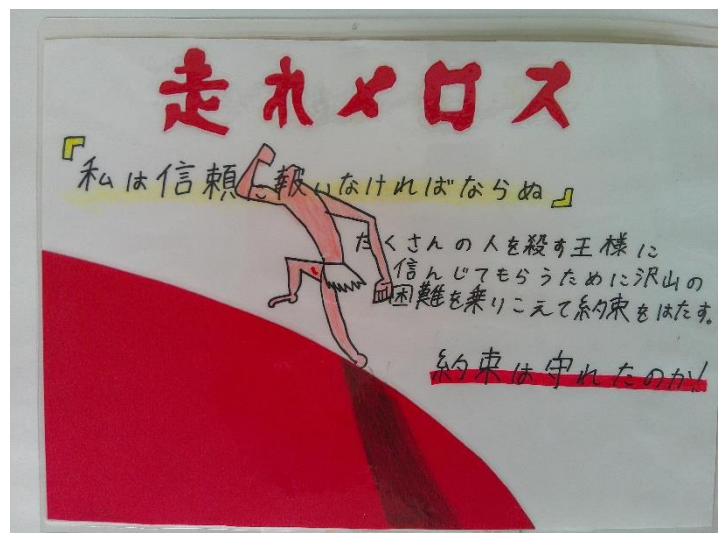 走れメロス
『私は信頼に報いなければならぬ』
たくさんの人を殺す王様に
信じてもらうために沢山の
困難を乗りこえて約束をはたす。
約束は守れたのか!